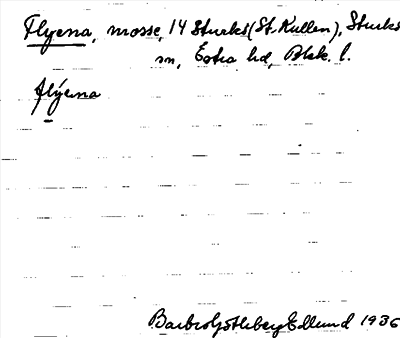 Flyena, mosse, 14 Sturkö (St. Kullen), Sturkö
sn, Östra hd, Blek. l.
flýena
Barbro Götlberg Edlund 1936